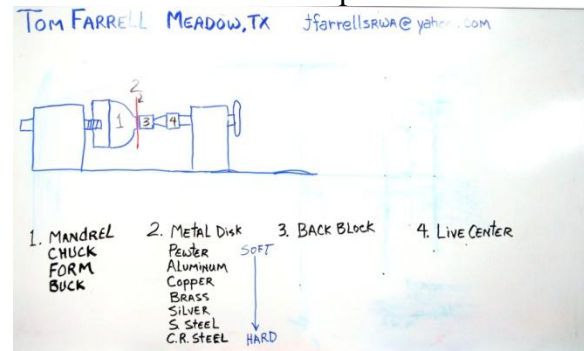 TOM FARRELL MEADOW, TX tfarrellsRWA@yahoo.com
2
1 3 4
1. MANDREL
CHUCK
FORM
BUCK
2. METAL DISK
PEWTER
ALUMINUM
COPPER
BRASS
SILVER
S. STEEL
C.R. STEEL
SOFT
HARD
3. BACK BLOCK
4. LIVE CENTER